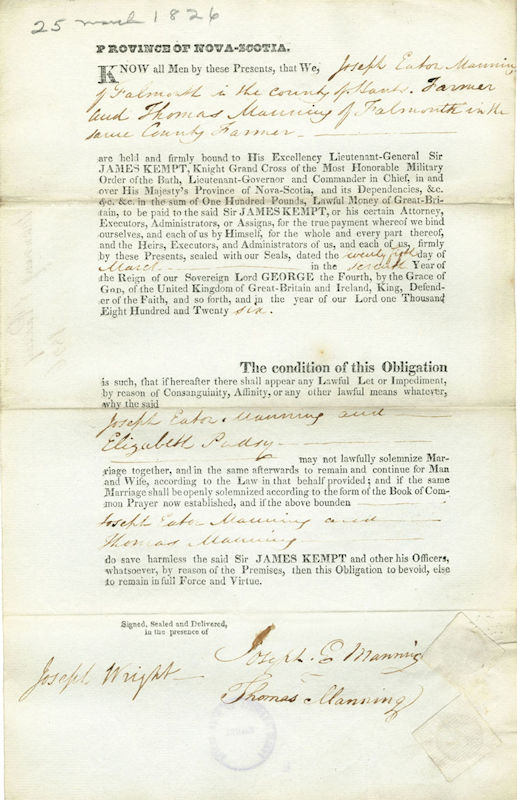 25 march 1826
PROVINCE OF NOVA-SCOTIA.
KNOW all Men by these Presents, that We, Joseph Eator Manning
of Falmouth in the county of Hants. Farmer
and Thomas Manning of Falmouth in the
same County Farmer
are held and firmly bound to His Excellency Lieutenant-General Sir
JAMES KEMPT, Knight Grand Cross of the Most Honorable Military
Order of the Bath, Lieutenant-Governor and Commander in Chief, in and
over His Majesty's Province of Nova-Scotia, and its Dependencies, &c.
&c. &c. in the sum of One Hundred Pounds, Lawful Money of Great-Bri-
tain, to be paid to the said Sir JAMES KEMPT, or his certain Attorney,
Executors, Administrators, or Assigns, for the true payment whereof we bind
ourselves, and each of us by Himself, for the whole and every part thereof,
and the Heirs, Executors, and Administrators of us, and each of us, firmly
by these Presents, sealed with our Seals, dated the twenty fifth day of
March in the seventh Year of
the Reign of our Sovereign Lord GEORGE the Fourth, by the Grace of
God, of the United Kingdom of Great-Britain and Ireland, King, Defend-
er of the Faith, and so forth, and in the year of our Lord one Thousand
Eight Hundred and Twenty six.
The condition of this Obligation
is such, that if hereafter there shall appear any Lawful Let or Impediment,
by reason of Consanguinity, Affinity, or any other lawful means whatever,
why the said
Joseph Eator Manning and
Elizabeth
may not lawfully solemnize Mar-
riage together, and in the same afterwards to remain and continue for Man
and Wife, according to the Law in that behalf provided; and if the same
Marriage shall be openly solemnized according to the form of the Book of Com-
mon Prayer now established, and if the above bounden
Joseph Eator Manning and
Thomas Manning
do save harmless the said Sir JAMES KEMPT and other his Officers,
whatsoever, by reason of the Premises, then this Obligation to bevoid, else
to remain in full Force and Virtue.
Signed, Sealed and Delivered,
in the presence of
Joseph. E Manning
Joseph Wright
Thomas Manning